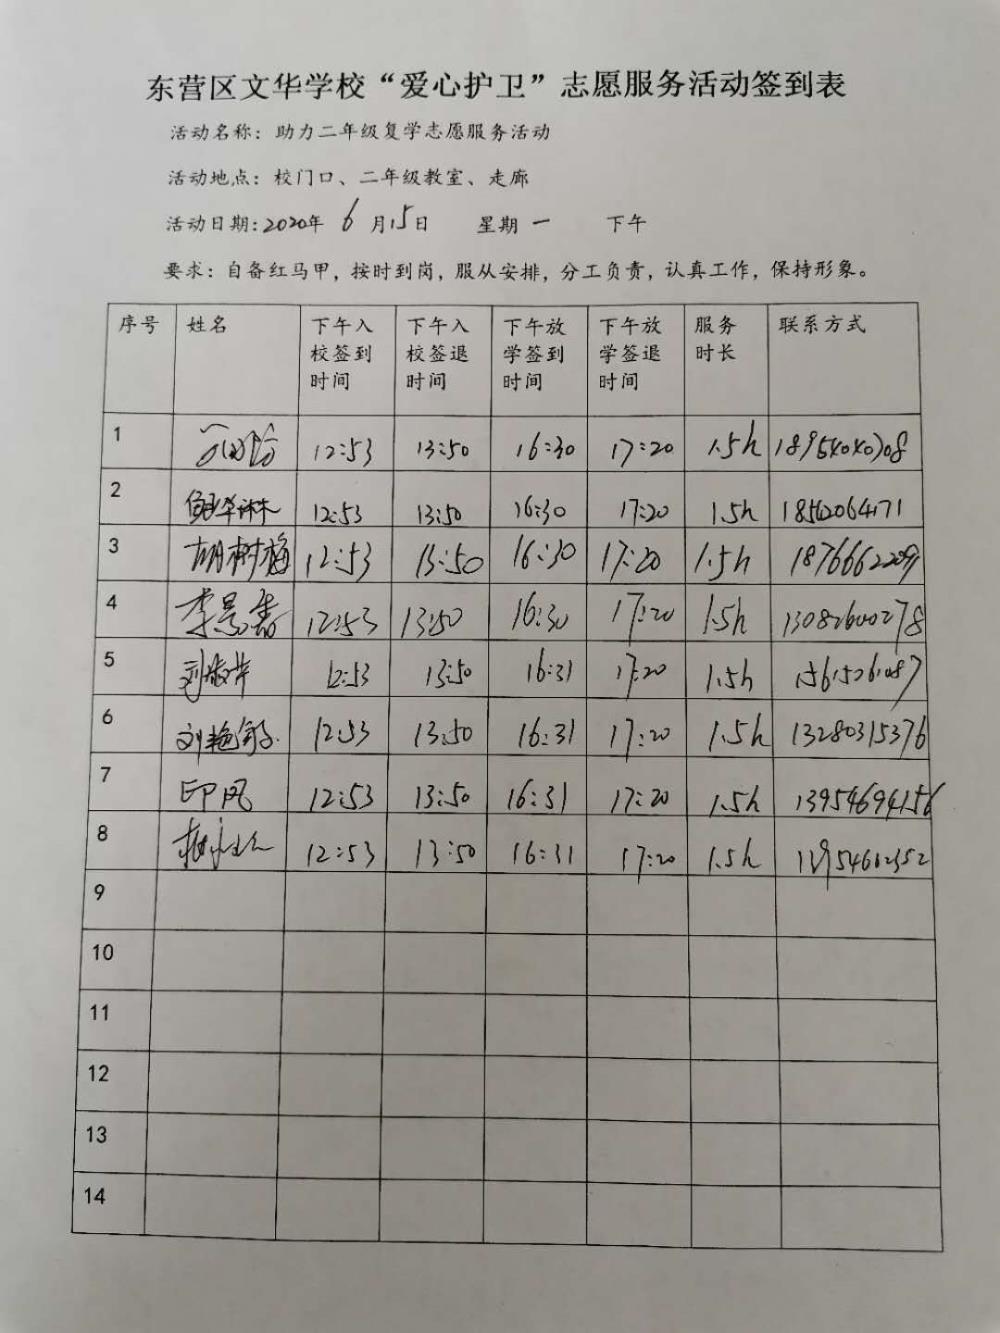 东营区文华学校“爱心护卫”志愿服务活动签到表
活动名称：助力二年级复学志愿服务活动
活动地点：校门口、二年级教室、走廊
活动日期：2020年 6 月15日 星期 一 下午
要求：自备红马甲，按时到岗，服从安排，分工负责，认真工作，保持形象。
序号 姓名 下午入校签到时间 下午入校签退时间 下午放学签到时间 下午放学签退时间 服务时长 联系方式
1 12:53 13:50 16:30 17:20 1.5h
2 12:53 13:50 16:30 17:20 1.5h
3 胡树梅 12:53 13:50 16:30 17:20 1.5h
4 12:53 13:50 16:30 17:20 1.5h 13082600278
5 12:53 13:50 16:31 17:20 1.5h
6 刘艳敏 12:53 13:50 16:31 17:20 1.5h 13280315376
7 印风 12:53 13:50 16:31 17:20 1.5h 13954694156
8 12:53 13:50 16:31 17:20 1.5h
9
10
11
12
13
14